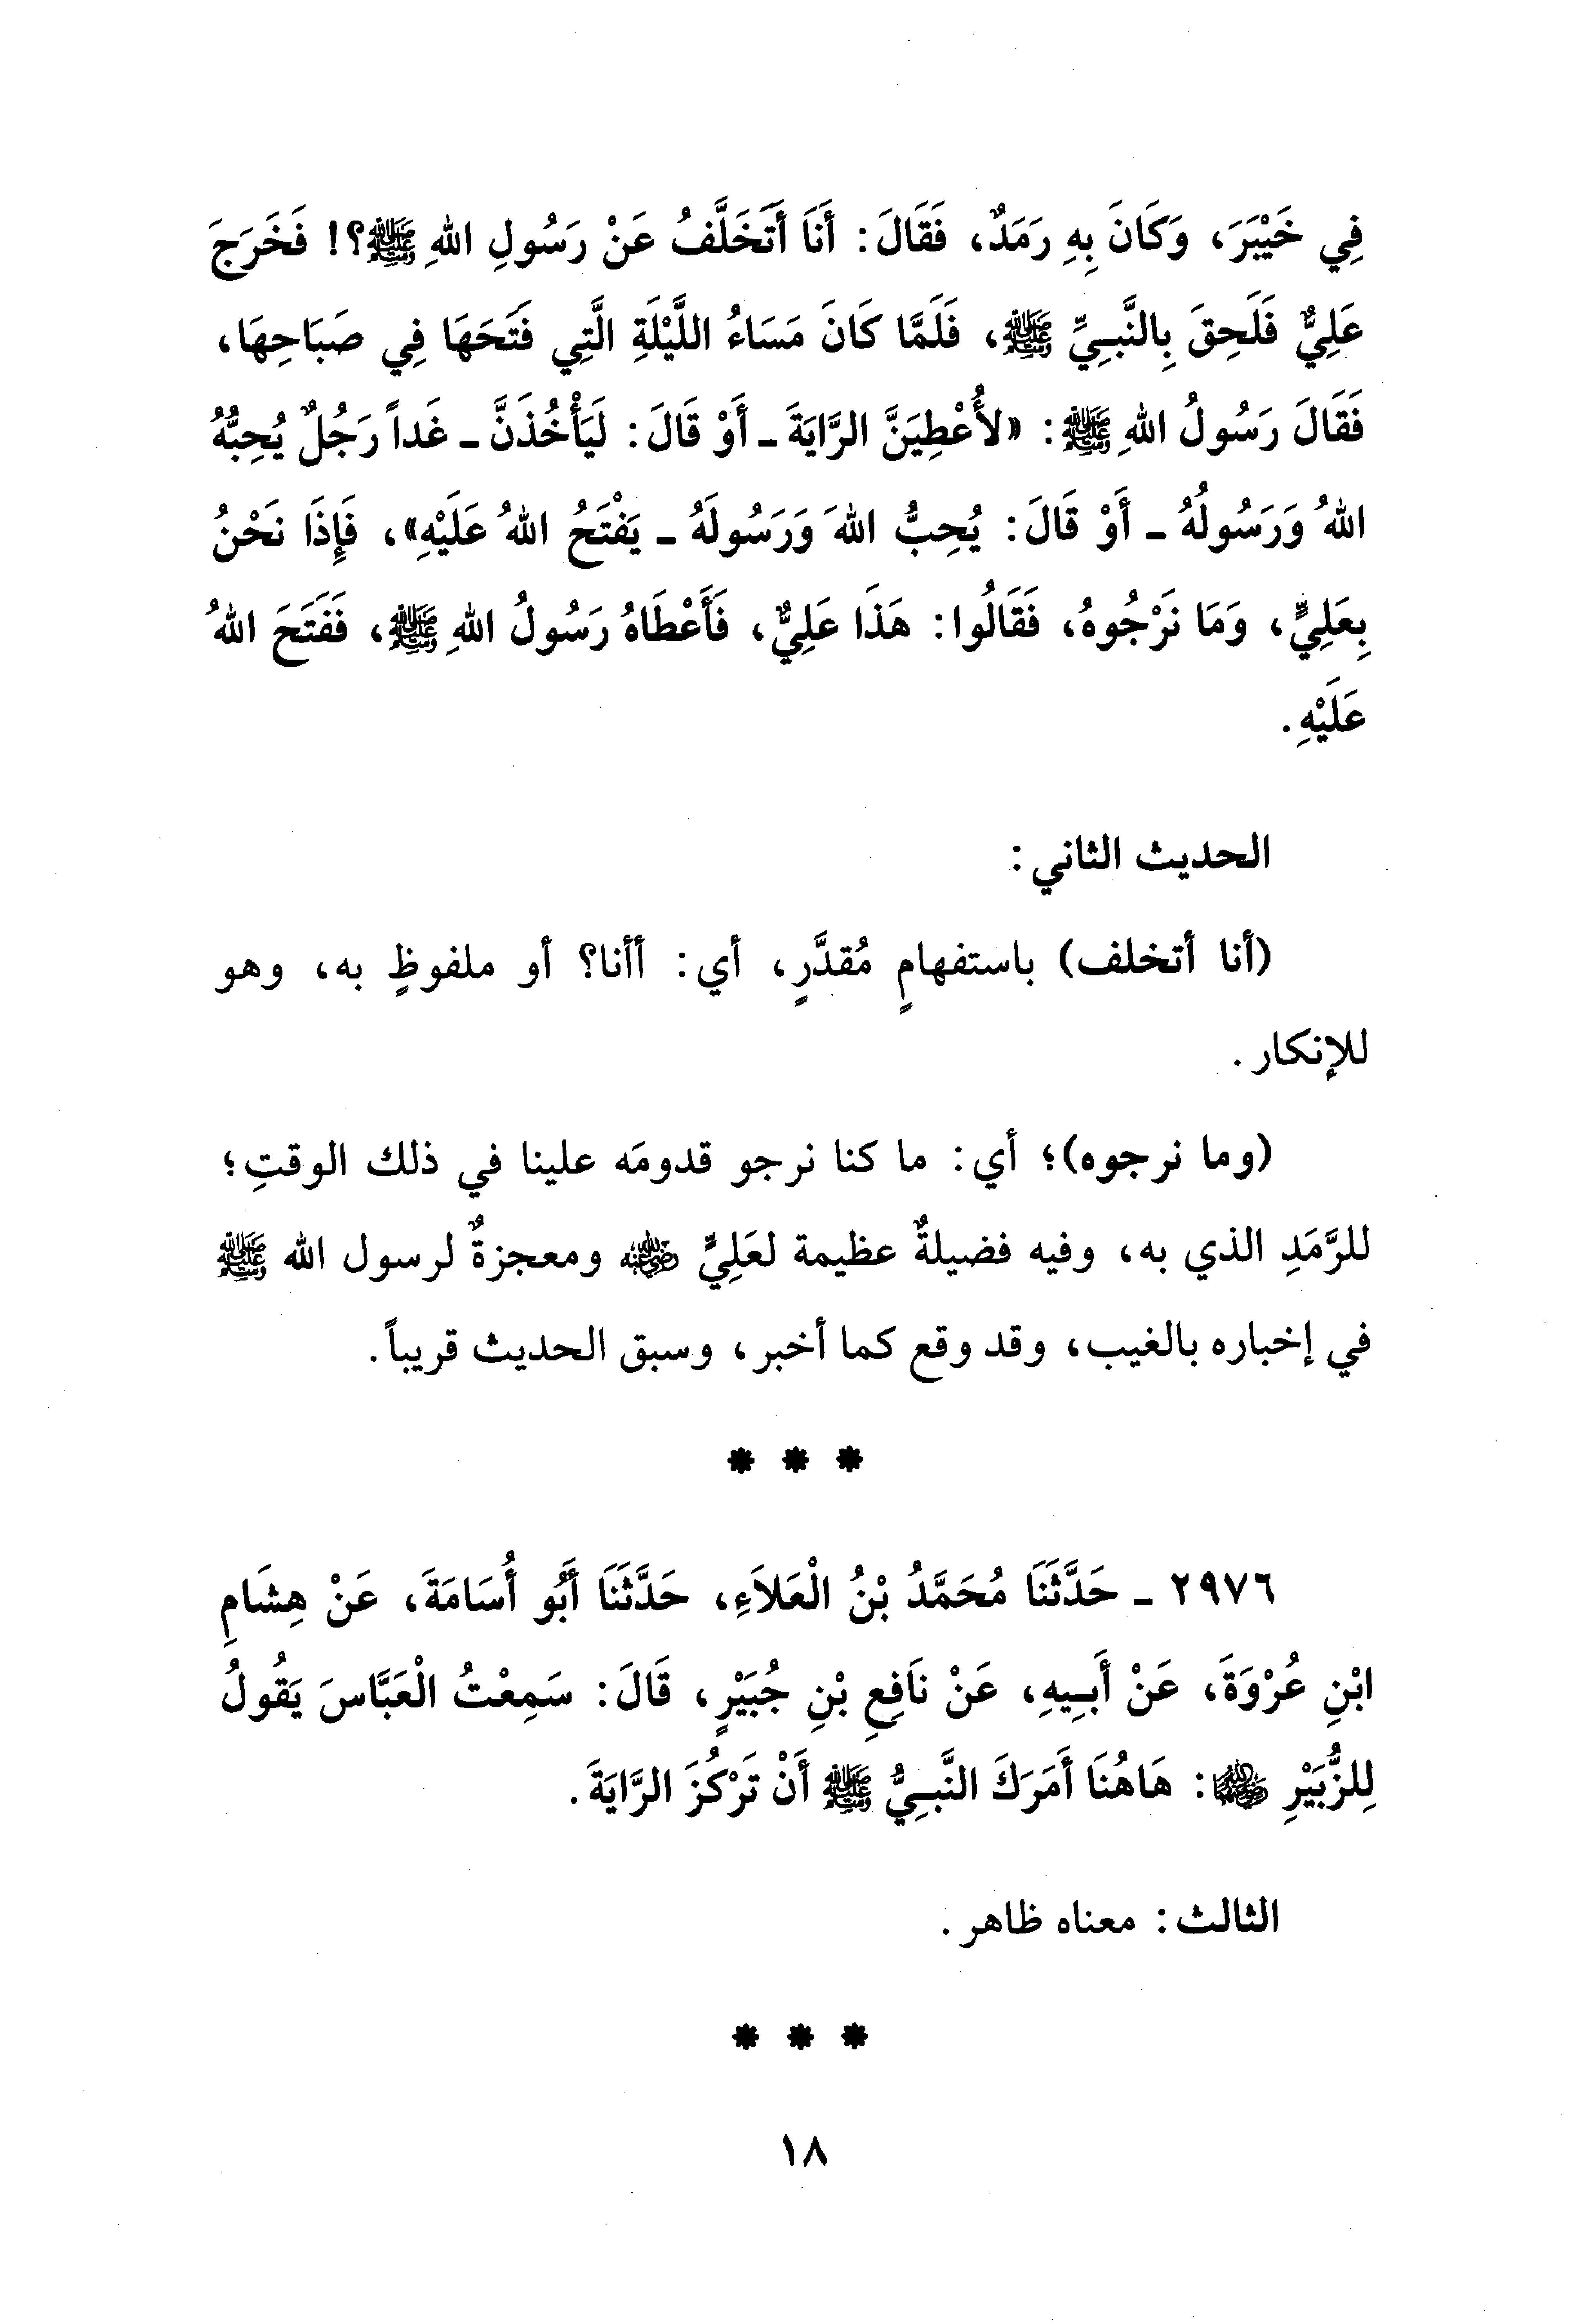 فِي خَيْبَرَ، وَكَانَ بِهِ رَمَدٌ، فَقَالَ: أَنَا أَتَخَلَّفُ عَنْ رَسُولِ اللهِ ﷺ؟! فَخَرَجَ
عَلِيٌّ فَلَحِقَ بِالنَّبِيِّ ﷺ، فَلَمَّا كَانَ مَسَاءُ اللَّيْلَةِ الَّتِي فَتَحَهَا فِي صَبَاحِهَا،
فَقَالَ رَسُولُ اللهِ ﷺ: «لأُعْطِيَنَّ الرَّايَةَ ـ أَوْ قَالَ: لَيَأْخُذَنَّ ـ غَداً رَجُلٌ يُحِبُّهُ
اللهُ وَرَسُولُهُ ـ أَوْ قَالَ: يُحِبُّ اللهَ وَرَسُولَهُ ـ يَفْتَحُ اللهُ عَلَيْهِ»، فَإِذَا نَحْنُ
بِعَلِيٍّ، وَمَا نَرْجُوهُ، فَقَالُوا: هَذَا عَلِيٌّ، فَأَعْطَاهُ رَسُولُ اللهِ ﷺ، فَفَتَحَ اللهُ
عَلَيْهِ.
الحديث الثاني:
(أنا أتخلف) باستفهامٍ مُقدَّرٍ، أي: أأنا؟ أو ملفوظٍ به، وهو
للإنكار.
(وما نرجوه)؛ أي: ما كنا نرجو قدومَه علينا في ذلك الوقتِ؛
للرَّمَدِ الذي به، وفيه فضيلةٌ عظيمة لعَلِيٍّ رضي الله عنه ومعجزةٌ لرسول الله ﷺ
في إخباره بالغيب، وقد وقع كما أخبر، وسبق الحديث قريباً.
* * *
٢٩٧٦ ـ حَدَّثَنَا مُحَمَّدُ بْنُ الْعَلاَءِ، حَدَّثَنَا أَبُو أُسَامَةَ، عَنْ هِشَامِ
ابْنِ عُرْوَةَ، عَنْ أَبِيهِ، عَنْ نَافِعِ بْنِ جُبَيْرٍ، قَالَ: سَمِعْتُ الْعَبَّاسَ يَقُولُ
لِلزُّبَيْرِ رضي الله عنهما: هَاهُنَا أَمَرَكَ النَّبِيُّ ﷺ أَنْ تَرْكُزَ الرَّايَةَ.
الثالث: معناه ظاهر.
* * *
١٨